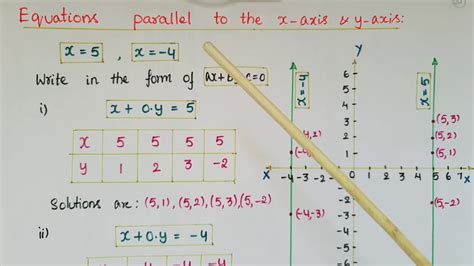 Equations parallel to the x-axis & y-axis:
x = 5 , x = -4
Write in the form of ax+b c=0
i) x + 0·y = 5
x 5 5 5 5
y 1 2 3 -2
Solutions are: (5,1), (5,2), (5,3), (5,-2)
ii) x+0·y = -4
Y
x = -4
x = 5
6
5
4
3
2
1
-1
-2
-3
-4
-5
-6
X -4 -3 -2 1 2 3 4 5 6 7 X
(5,3)
(5,2)
(5,1)
(5,-2)
(-4,-3)